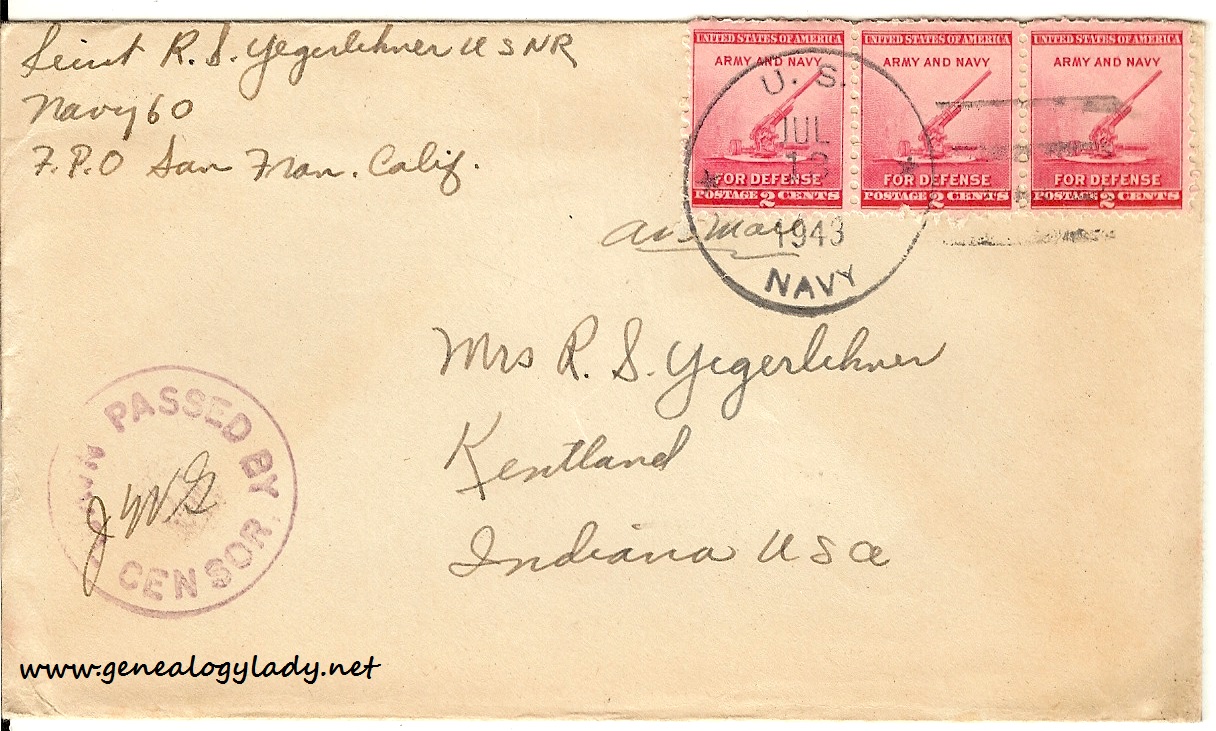 Lieut R. S. Yegerlehner USNR
Navy 60
F.P.O San Fran. Calif.
UNITED STATES OF AMERICA UNITED STATES OF AMERICA UNITED STATES OF AMERICA
ARMY AND NAVY ARMY AND NAVY ARMY AND NAVY
FOR DEFENSE FOR DEFENSE FOR DEFENSE
POSTAGE 2 CENTS POSTAGE 2 CENTS POSTAGE 2 CENTS
U. S.
JUL
1943
NAVY
Air Mail
Mrs R. S. Yegerlehner
Kentland
Indiana USA
PASSED BY
CENSOR
JWG
www.genealogylady.net